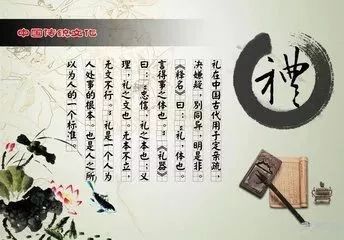 中国传统文化
禮
礼在中国古代用于定亲疏，
决嫌疑，别同异，明是非。
《释名》曰：“礼，体也。
言得事之体也。”《礼器》
曰：“忠信，礼之本也；义
理，礼之文也。无本不立，
无文不行。”礼是一个人为
人处事的根本。也是人之所
以为人的一个标准。